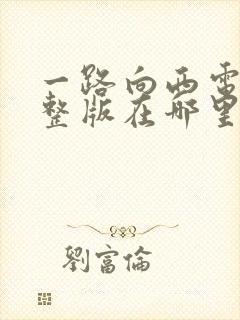 一路向西雷
整版在哪里
劉富倫